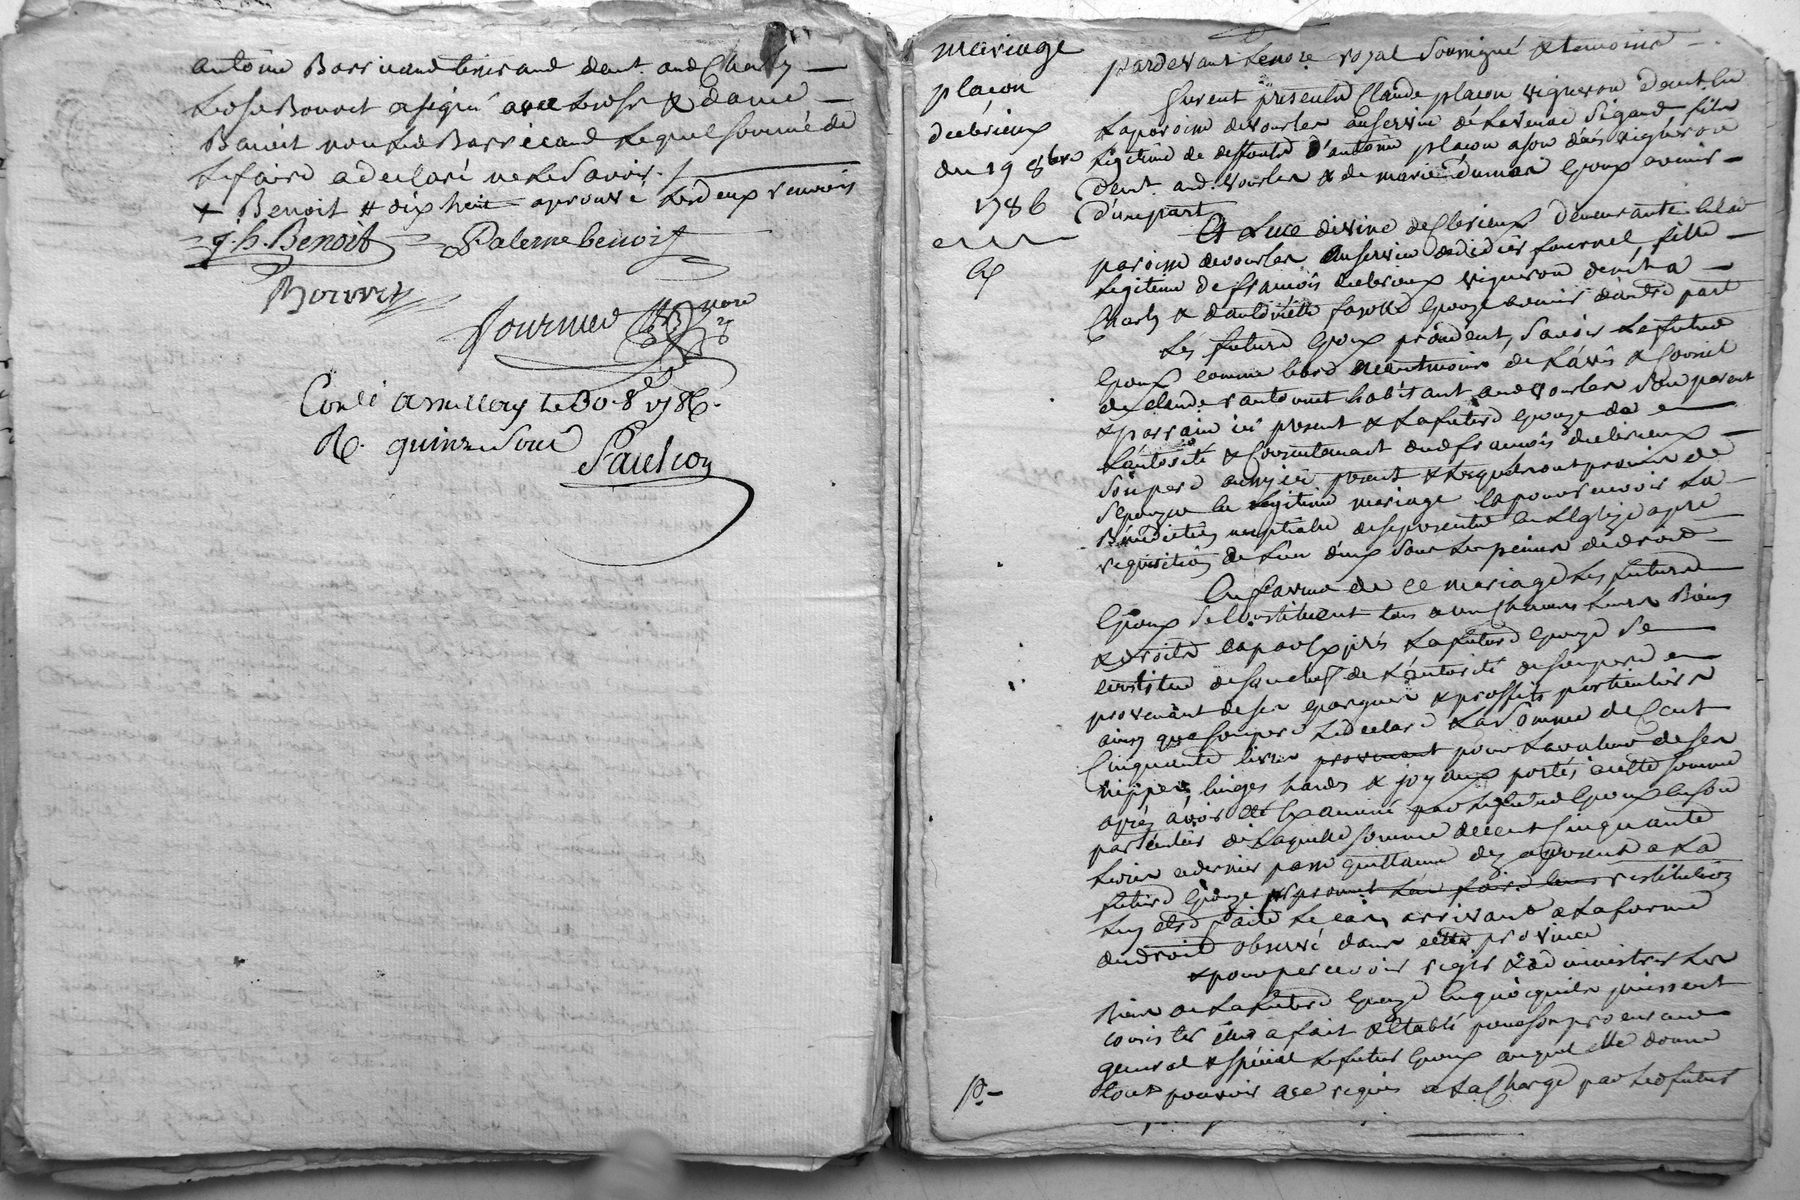 antoine Barricand tisserand dem.t aud Charly
Led. s.r Bonnet a signé avec led. s.r & dame
Benoit non led. Barricand lequel sommé de
le faire a declaré ne le savoir ./.
+ Benoit # dix huit aprouvé les deux renvois
J. h. Benoit Palerne benoist
Bonnet
fournier no.re
Con.lé a millery le 30 8.e 1786.
R. quinze sous
Paulhon
mariage
placon
declerieux
du 19 8bre
1786
pardevant le no.re royal soussigné & temoins
furent presents Claude placon vigneron dem.t en
la paroisse de vourles au service de
legitime de deffunt d'antoine placon a son deces vigneron
dem.t aud. vourles & de marie dumas epoux avenir
d'une part
Et divine declerieux demeurante en lad.
paroisse de vourles au service de fournel, fille
legitime de françois declerieux vigneron dem.t a
Charly & d'antoinette epouze avenir d'autre part
Les futurs epoux procedent, savoir le futur
epoux comme libre neantmoins de l'avis & conseil
de claude habitant aud vourles son parent
& parrain ici present & la future epouze de
l'autorité & consentement dud françois declerieux
son pere aussy ici present & lesquels ont promis de
s'epouzer en legitime mariage & pour recevoir la
Bénédiction nuptiale de se presenter en l'eglize a pre.re
requisition de l'un d'eux sous les peines de droit
En faveur de ce mariage les futurs
epoux se constituent tous & un chacuns leurs Biens
& droits & par exprés la future epouze se
constitue de son chef de l'autorité de son pere
provenant de ses epargnes & proffits particuliers
ainsy que son pere le declare la somme de Cent
Cinquante livres provenant pour la valeur de ses
nippes, linges hardes & joyaux portés a cette somme
aprés avoir été examiné par le futur epoux en son
particulier de laquelle somme de cent cinquante
livres ce dernier passe quittance des a present a la
future epouze promet leur faire leur restitution
luy etre faite le cas arrivant a la forme
du droit observé dans cette province
& pour percevoir regir & administrer les
Biens de la future epouze en quoy qu'ils puissent
consister elle a fait & etabli pour son procureur
general & special le futur epoux auquel elle donne
tout pouvoir a ce requis a la charge par led futur
P.-